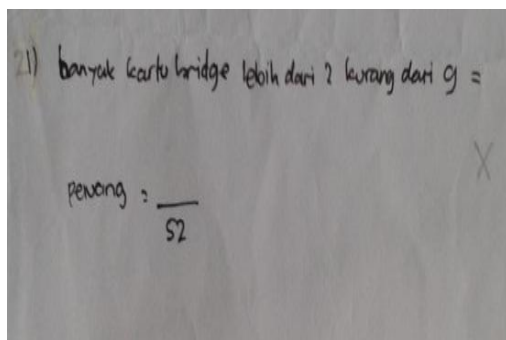 21) banyak kartu bridge lebih dari 2 kurang dari 9 =
X
peluang = __
52